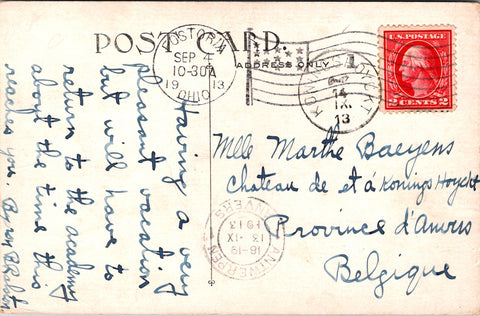 POST CARD.
ADDRESS ONLY
FOSTORIA
SEP 4
10-30A
1913
OHIO
U.S. POSTAGE
2 CENTS 2
14
IX
13
ANTWERPEN
16-19
13-IX
1913
ANVERS
Having a very
pleasant vacation
but will have to
return to the academy
about the time this
reaches you.
Mlle Marthe Baeyens
Chateau de et á Konings Hoyckt
Province d'Anvers
Belgique